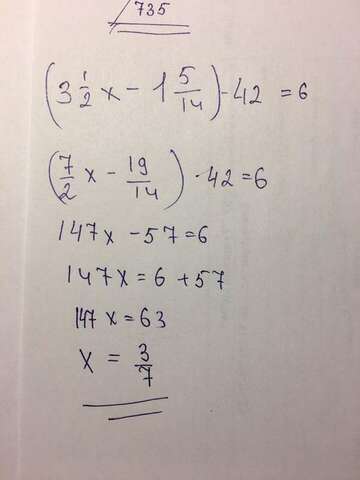 735
(3 1/2 x - 1 5/14) - 42 = 6
(7/2 x - 19/14) · 42 = 6
147x - 57 = 6
147x = 6 + 57
147x = 63
x = 3/7